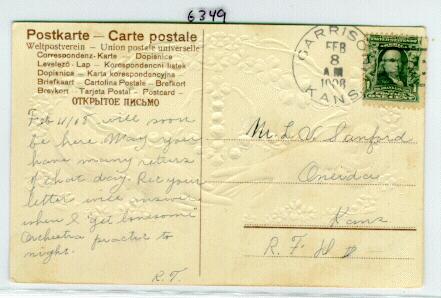 6349
Postkarte — Carte postale
Weltpostverein — Union postale universelle
Correspondenz-Karte — Dopisnice
Levelező-Lap — Korespondencni listek
Dopisnica — Karta korespondencyjna
Briefkaart — Cartolina Postale — Brefkort
Brevkort — Tarjeta Postal — Postcard —
ОТКРЫТОЕ ПИСЬМО
GARRISON
FEB
8
AM
1908
KANS
Feb 11/08 will soon
be here. May you
have many returns
of that day. Rec your
letter will answer
when I get lonesome
Orchestra practice to
night.
R.T.
Mr. L V Sanford
Oneida
Kans
R. F. D